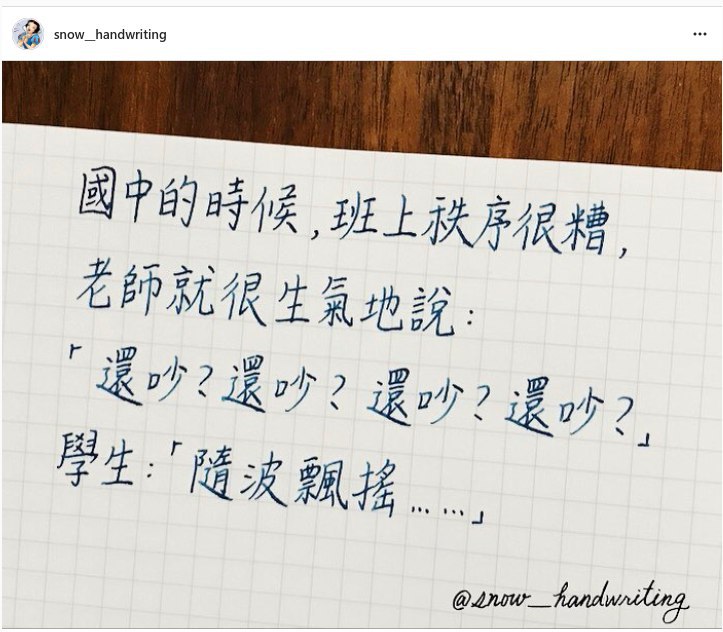 snow__handwriting
國中的時候,班上秩序很糟,
老師就很生氣地說:
「還吵?還吵?還吵?還吵?」
學生:「隨波飄搖……」
@snow__handwriting